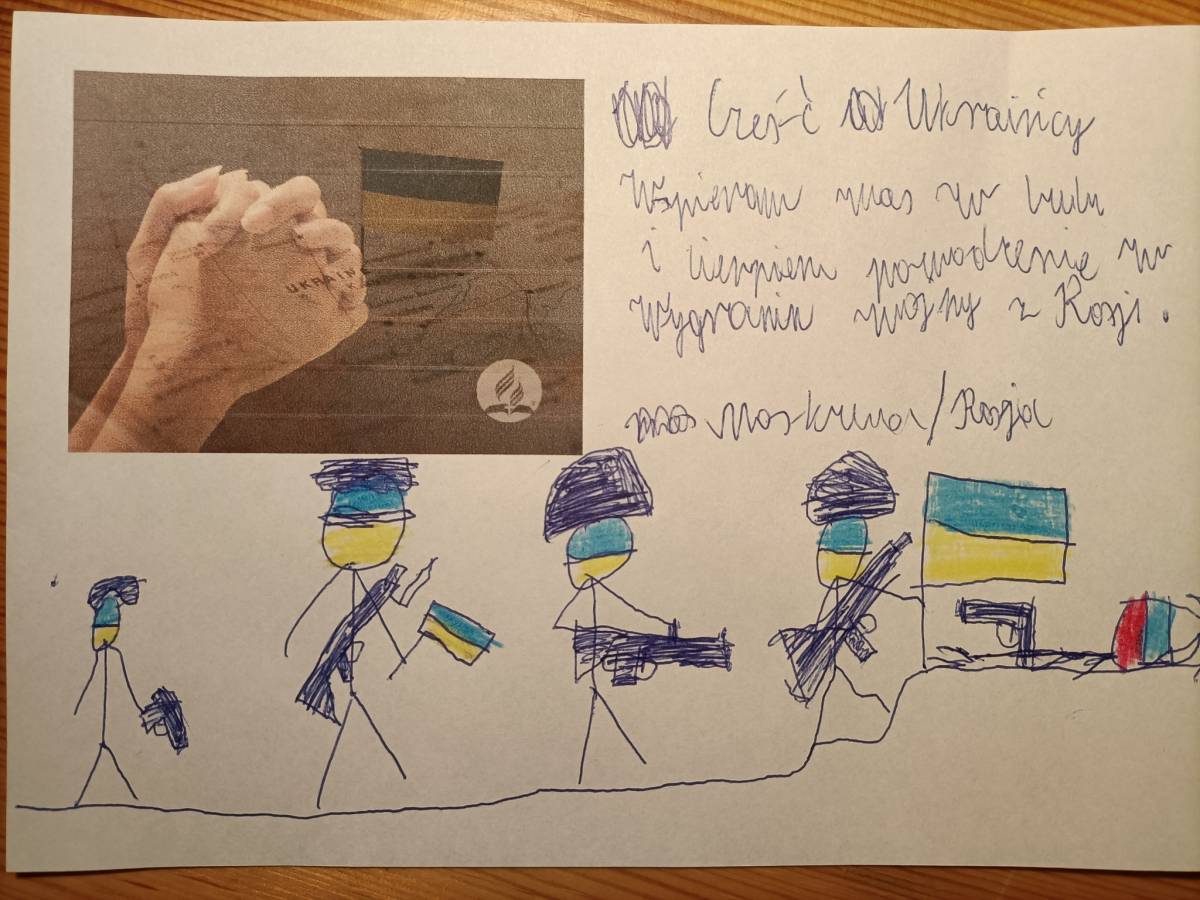 UKRAIN
Cześć Ukraińcy
Wspieram was w bulu
i powodzenie w
Wygraniu wojny z Rosji.
Moskwa/Rosja